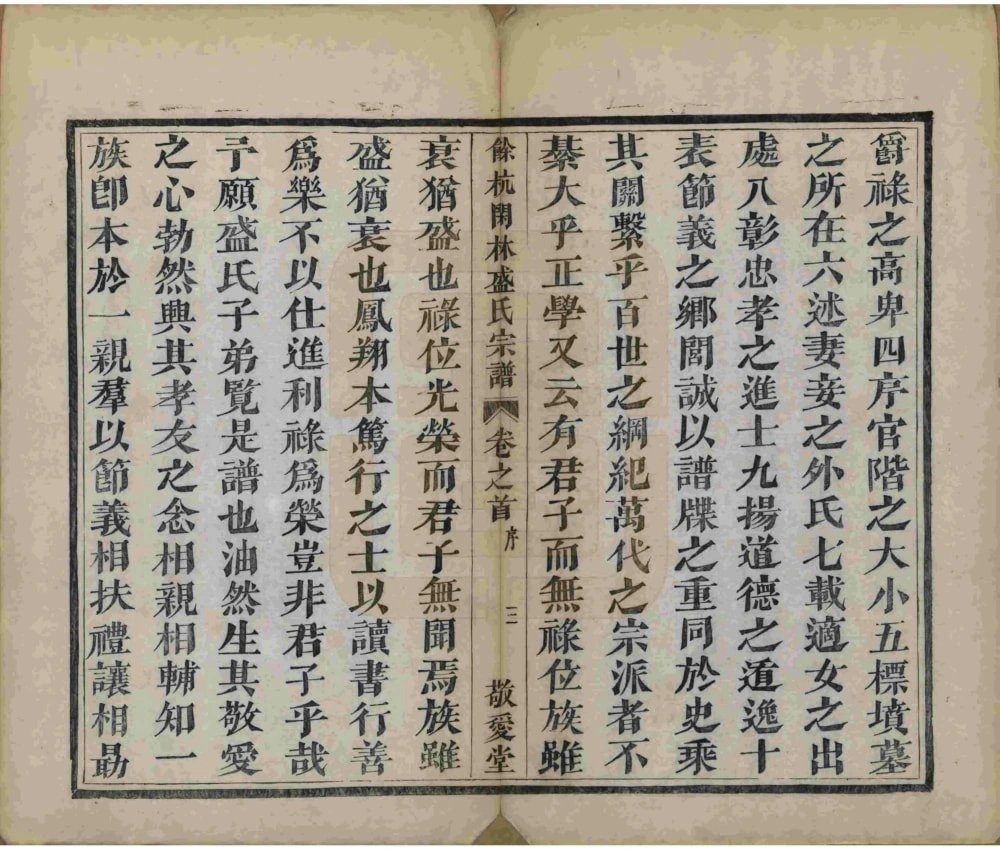 爵祿之高卑四序官階之大小五標墳墓
之所在六述妻妾之外氏七載適女之出
處八彰忠孝之進士九揚道德之遁逸十
表節義之鄉閭誠以譜牒之重同於史乘
其關繫乎百世之綱紀萬代之宗派者不
綦大乎正學又云有君子而無祿位族雖
餘杭閑林盛氏宗譜 卷之首 序 三 敬愛堂
衰猶盛也祿位光榮而君子無聞焉族雖
盛猶衰也鳳翔本篤行之士以讀書行善
爲樂不以仕進利祿爲榮豈非君子乎哉
予願盛氏子弟覽是譜也油然生其敬愛
之心勃然興其孝友之念相親相輔知一
族卽本於一親羣以節義相扶禮讓相勗